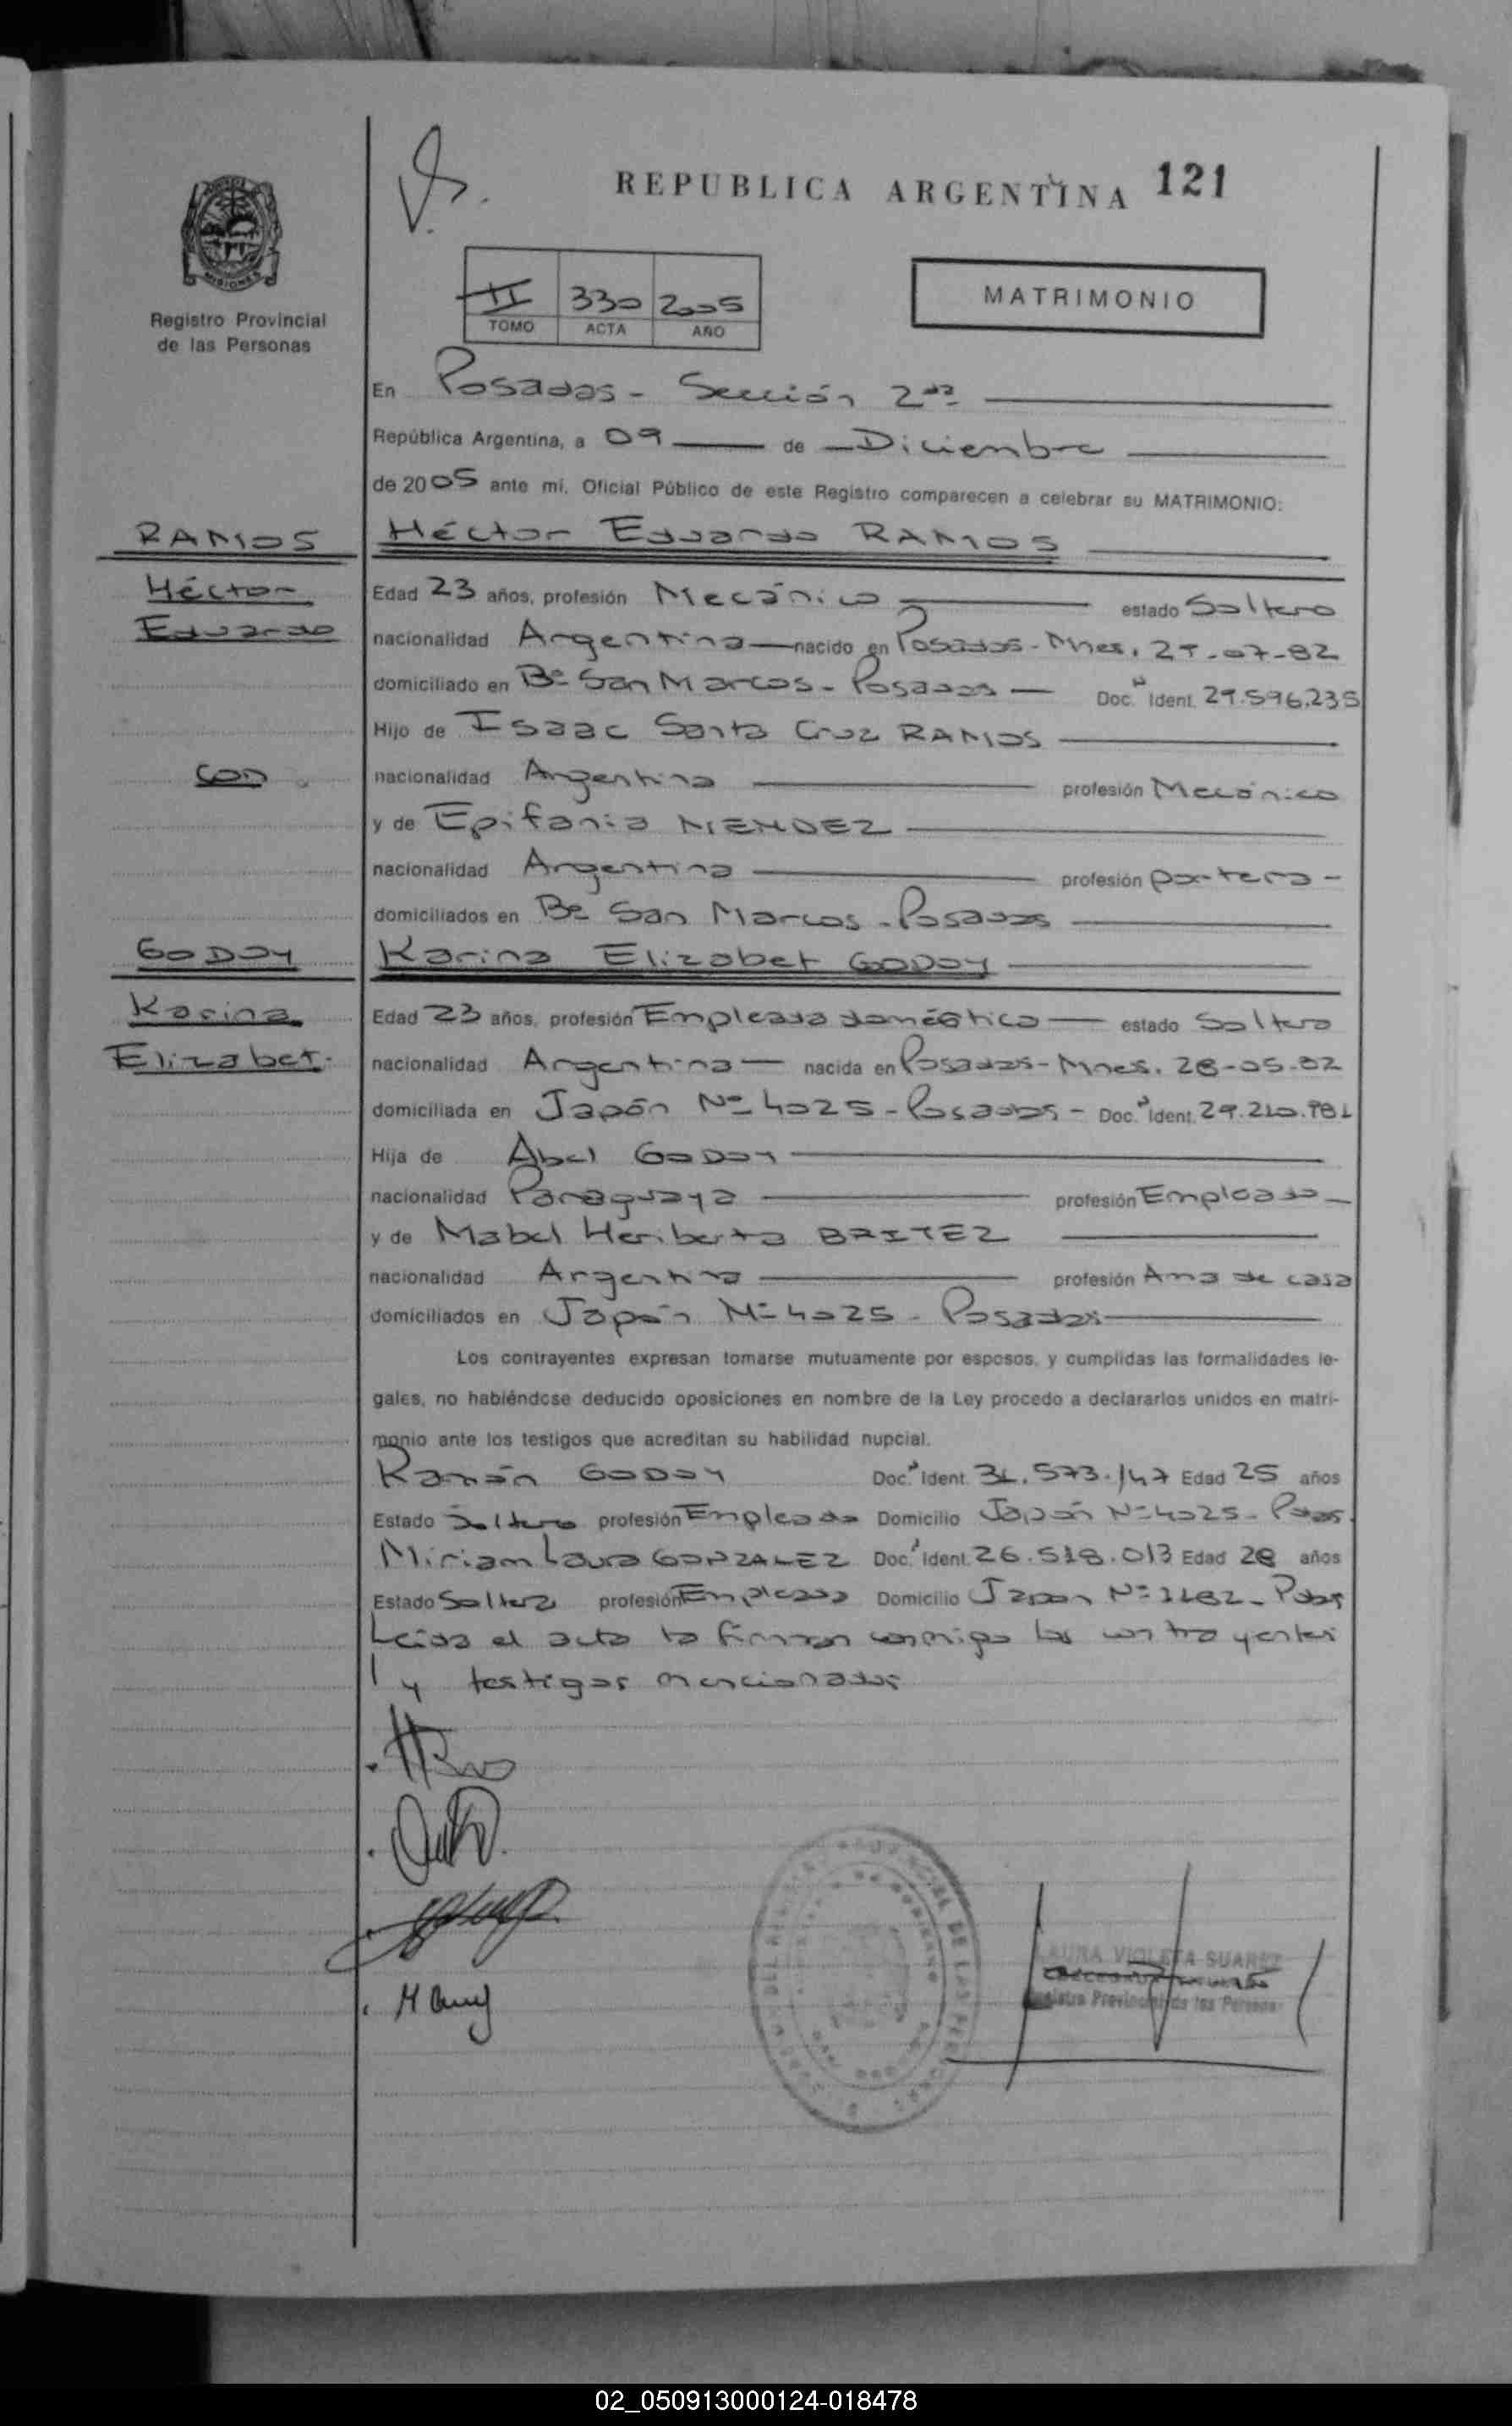 REPUBLICA ARGENTINA 121
MISIONES
Registro Provincial
de las Personas
II 330 2005
TOMO ACTA AÑO
MATRIMONIO
En Posadas - Sección 2da
República Argentina, a 09 de Diciembre
de 2005 ante mí, Oficial Público de este Registro comparecen a celebrar su MATRIMONIO:
RAMOS
Héctor Eduardo RAMOS
Héctor
Eduardo
Edad 23 años, profesión Mecánico estado Soltero
nacionalidad Argentina nacido en Posadas - Mnes. 29-07-82
domiciliado en Bº San Marcos - Posadas Doc. Ident. 29.596.235
Hijo de Isaac Santa Cruz RAMOS
con
nacionalidad Argentina profesión Mecánico
y de Epifania MENDEZ
nacionalidad Argentina profesión portera
domiciliados en Bº San Marcos - Posadas
GODOY
Karina Elizabet GODOY
Karina
Elizabet.
Edad 23 años, profesión Empleada doméstica estado Soltera
nacionalidad Argentina nacida en Posadas - Mnes. 28-05-82
domiciliada en Japón Nº 4025 - Posadas - Doc. Ident. 29.210.981
Hija de Abel GODOY
nacionalidad Paraguaya profesión Empleado
y de Mabel Heriberta BRITEZ
nacionalidad Argentina profesión Ama de casa
domiciliados en Japón Nº 4025 - Posadas
Los contrayentes expresan tomarse mutuamente por esposos, y cumplidas las formalidades le-
gales, no habiéndose deducido oposiciones en nombre de la Ley procedo a declararlos unidos en matri-
monio ante los testigos que acreditan su habilidad nupcial.
Ramón GODOY Doc. Ident. 31.573.147 Edad 25 años
Estado Soltero profesión Empleado Domicilio Japón Nº 4025 - Pdas.
Miriam Laura GONZALEZ Doc. Ident. 26.518.013 Edad 28 años
Estado Soltera profesión Empleada Domicilio Japon Nº 1182 - Pdas
Leida el acta la firman conmigo los contrayentes
y testigos mencionados
LAURA VIOLETA SUAREZ
Registro Provincial de las Personas
02_050913000124-018478